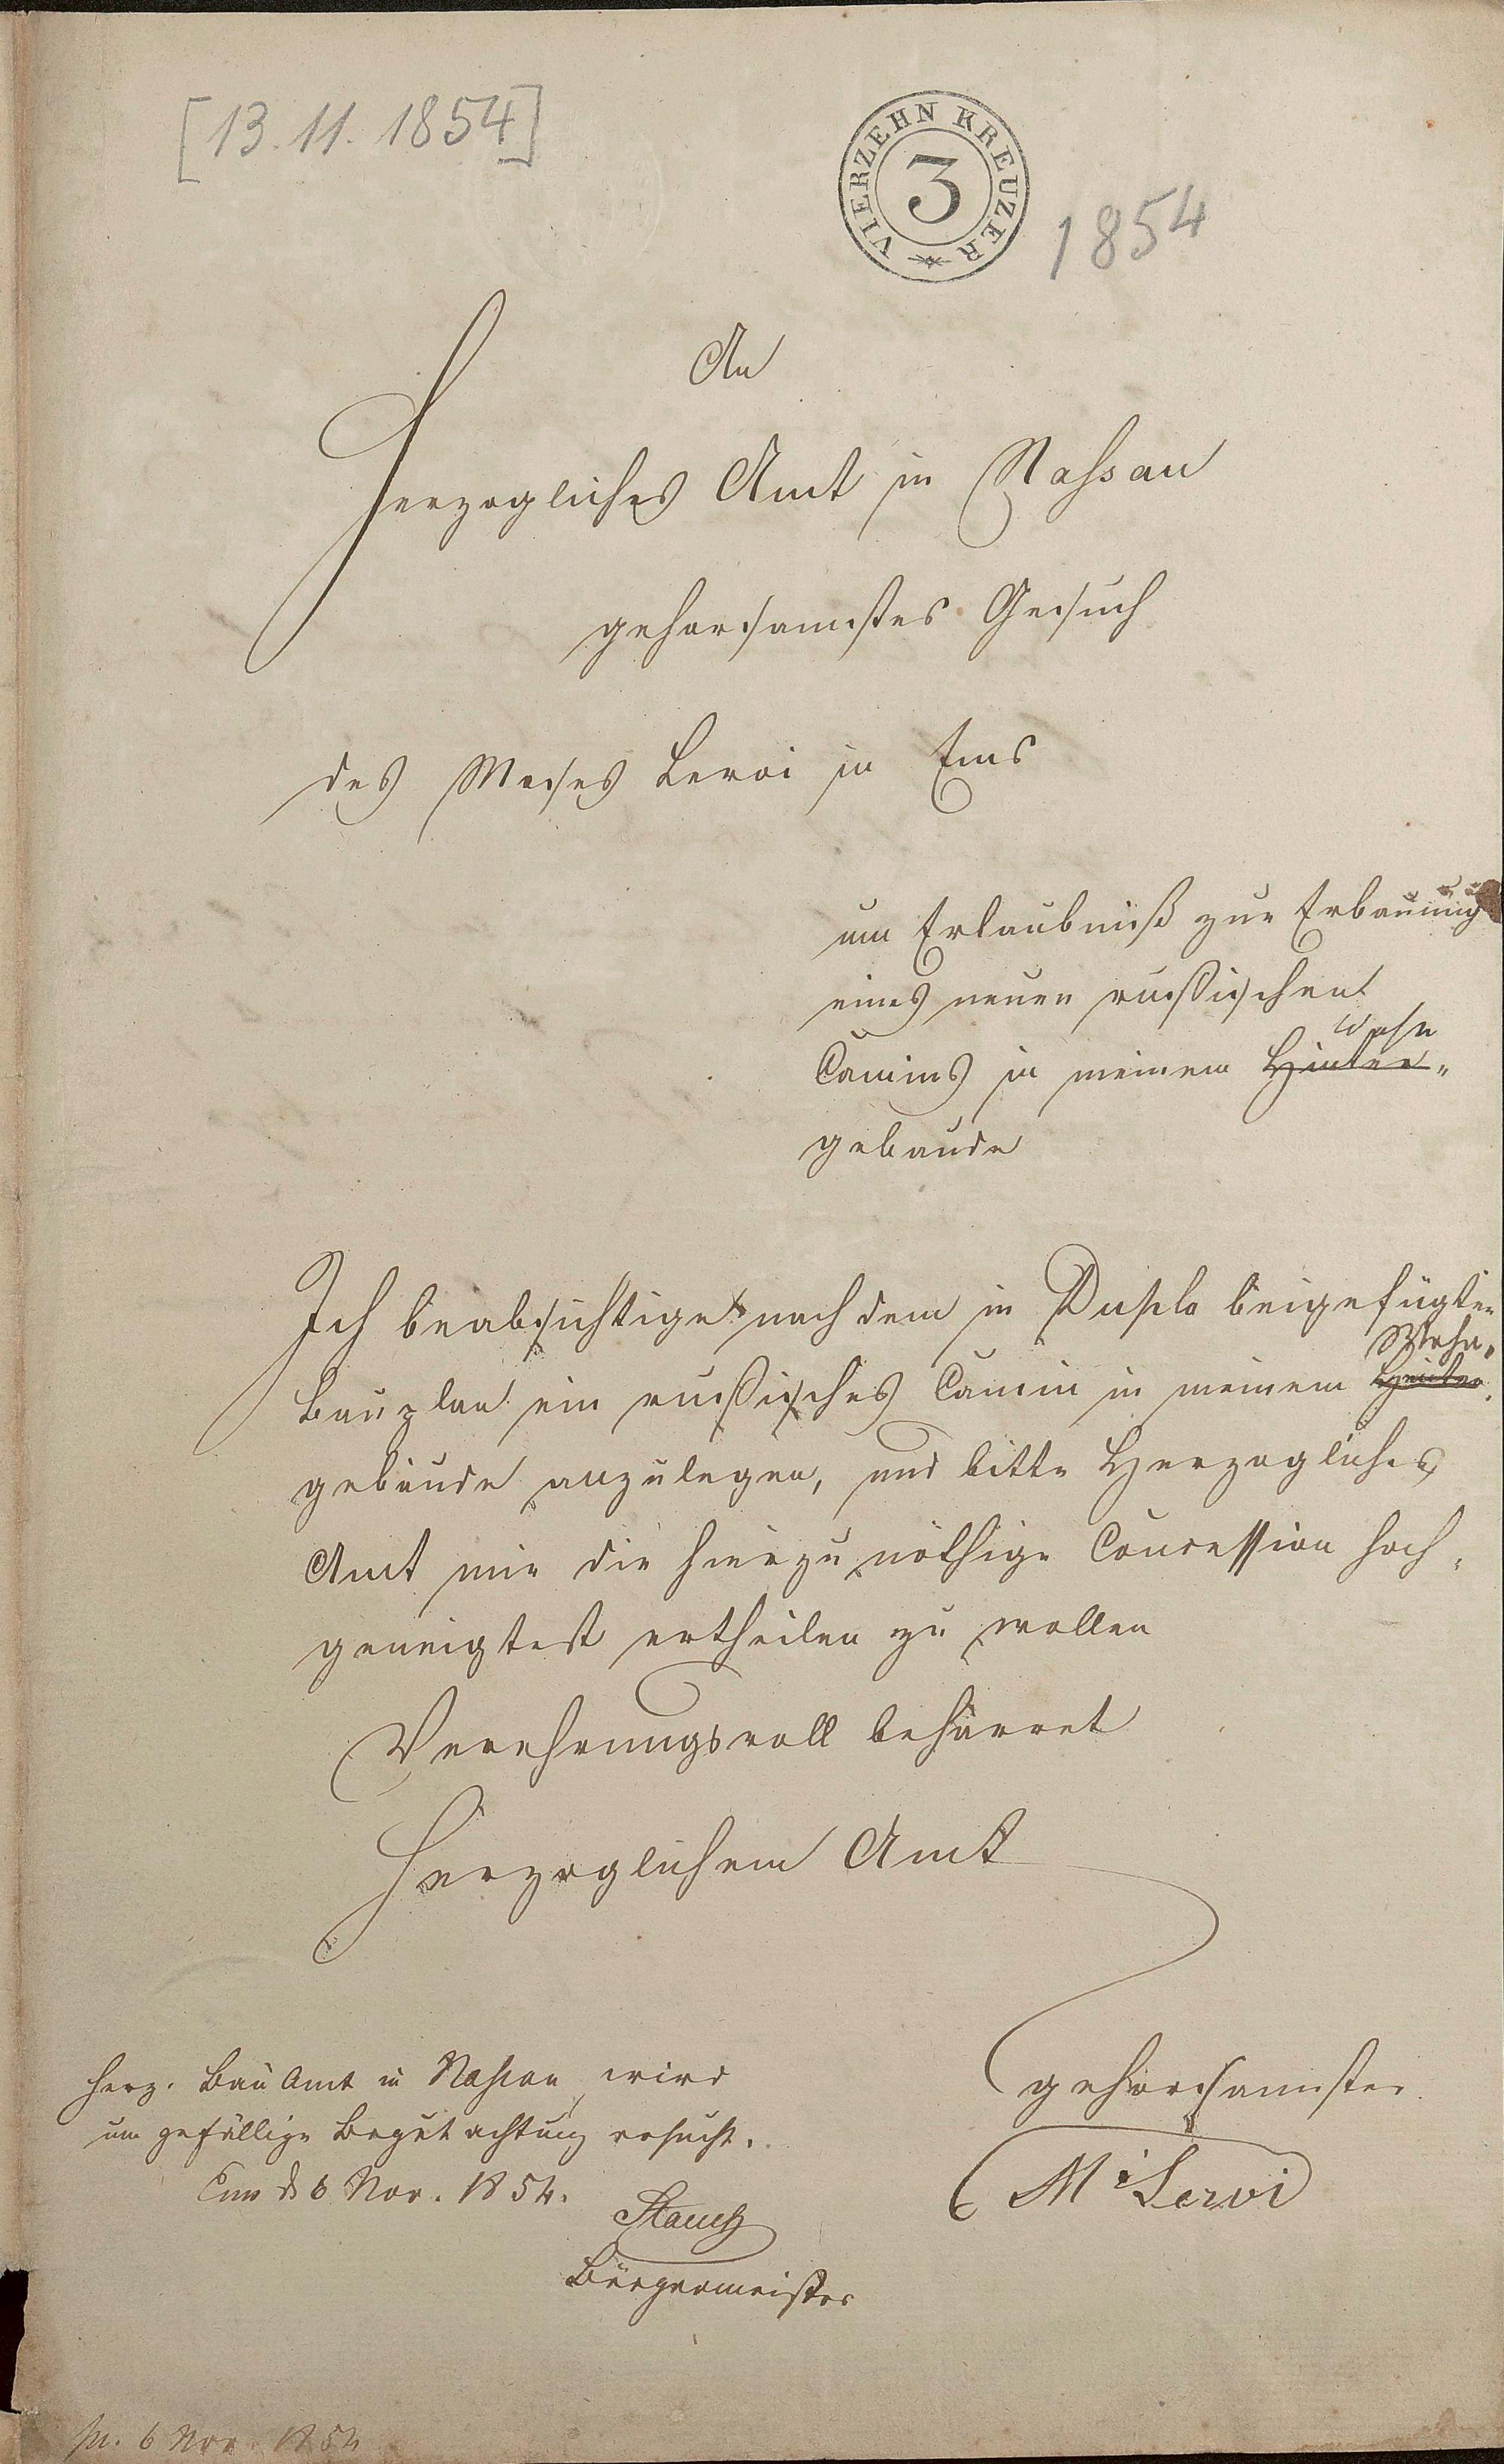 [13.11.1854]
VIERZEHN KREUZER
3
1854
An
Herzogliches Amt in Nassau
gehorsamstes Gesuch
des Moses Leroi in Ems
um Erlaubniß zur Erbauung
eines neuen rußischen
Wohn
Camins in meinem Hinter-
gebäude
Ich beabsichtige nach dem in Duplo beigefügten
Wohn-
Bauplan ein rußisches Camin in meinem Hinter-
gebäude anzulegen, und bitte Herzogliches
Amt mir die hierzu nöthige Concession hoch-
geneigtest ertheilen zu wollen
Verehrungsvoll beharret
Herzoglichem Amt
gehorsamster
M Leroi
Herz. Bau Amt in Nassau wird
um gefällige Begutachtung ersucht.
Ems d 6 Nov. 1854.
Bürgermeister
pr. 6 Nov. 1854